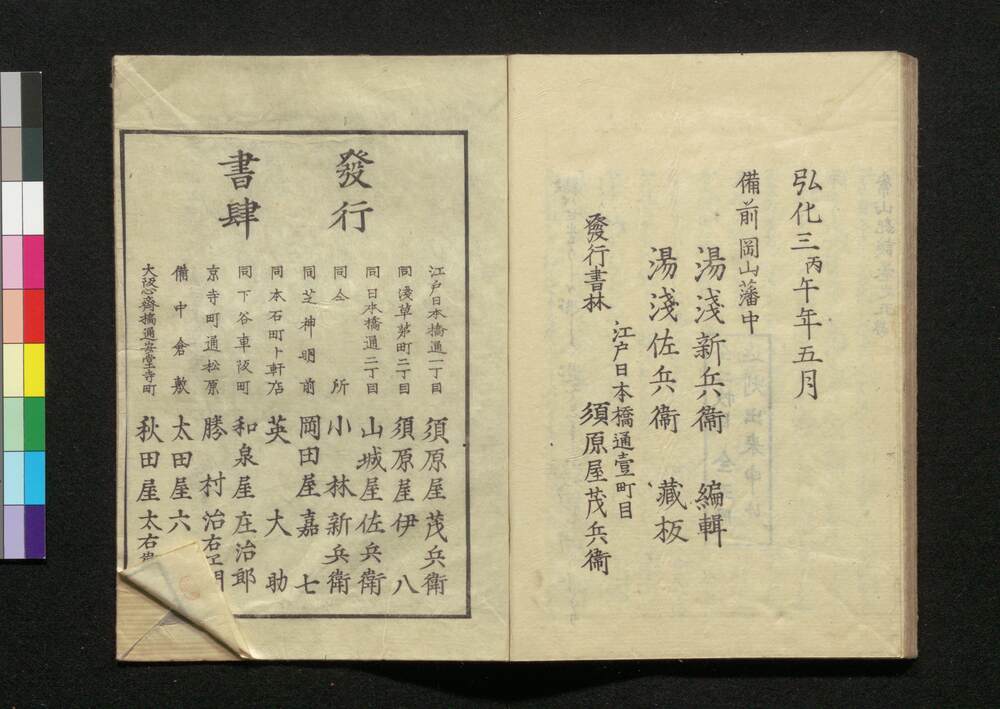 弘化三丙午年五月
備前岡山藩中
湯淺新兵衞 編輯
湯淺佐兵衞 藏板
發行書林
江戸日本橋通壹町目
須原屋茂兵衞
發行
書肆
江戸日本橋通一丁目 須原屋茂兵衞
同淺草茅町二丁目 須原屋伊八
同日本橋通二丁目 山城屋佐兵衞
同仝所 小林新兵衞
同芝神明前 岡田屋嘉七
同本石町十軒店 英大助
同下谷車阪町 和泉屋庄治郎
京寺町通松原 勝村治右エ門
備中倉敷 太田屋六
大阪心齋橋通安堂寺町 秋田屋太右